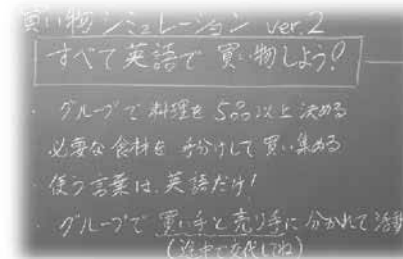 買い物シミュレーション ver.2
すべて英語で 買い物しよう!
・グループで料理を5品以上決める
必要な食材を手分けして買い集める
・使う言葉は、英語だけ!
・グループで買い手と売り手に分かれて活動
(途中で交代してね)